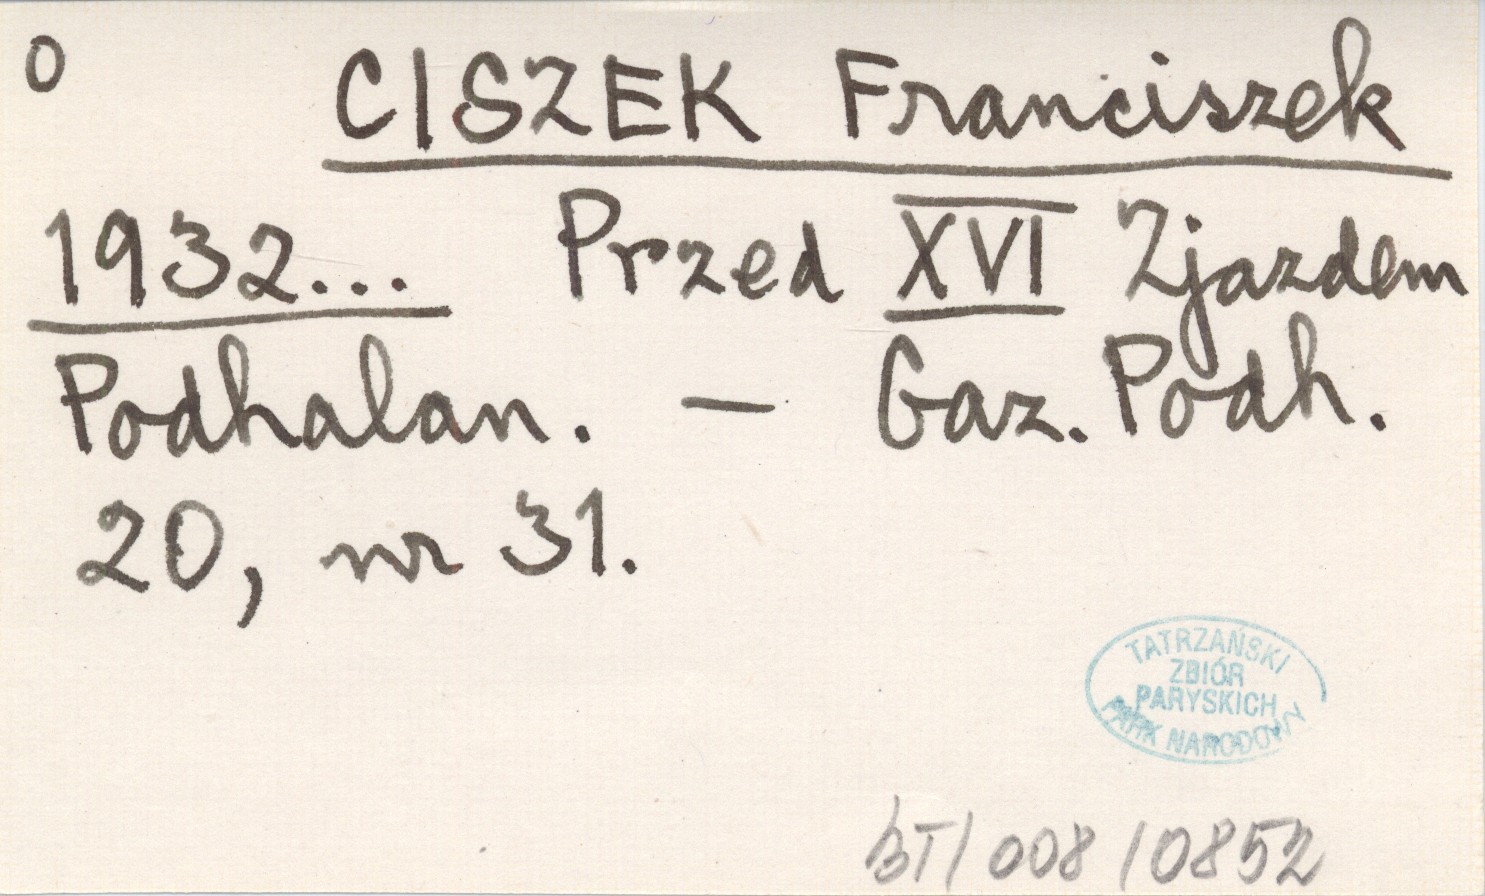 O CISZEK Franciszek
1932... Przed XVI Zjazdem
Podhalan. — Gaz. Podh.
20, nr 31.
TATRZAŃSKI
ZBIÓR
PARYSKICH
PARK NARODOWY
BT/008/0852